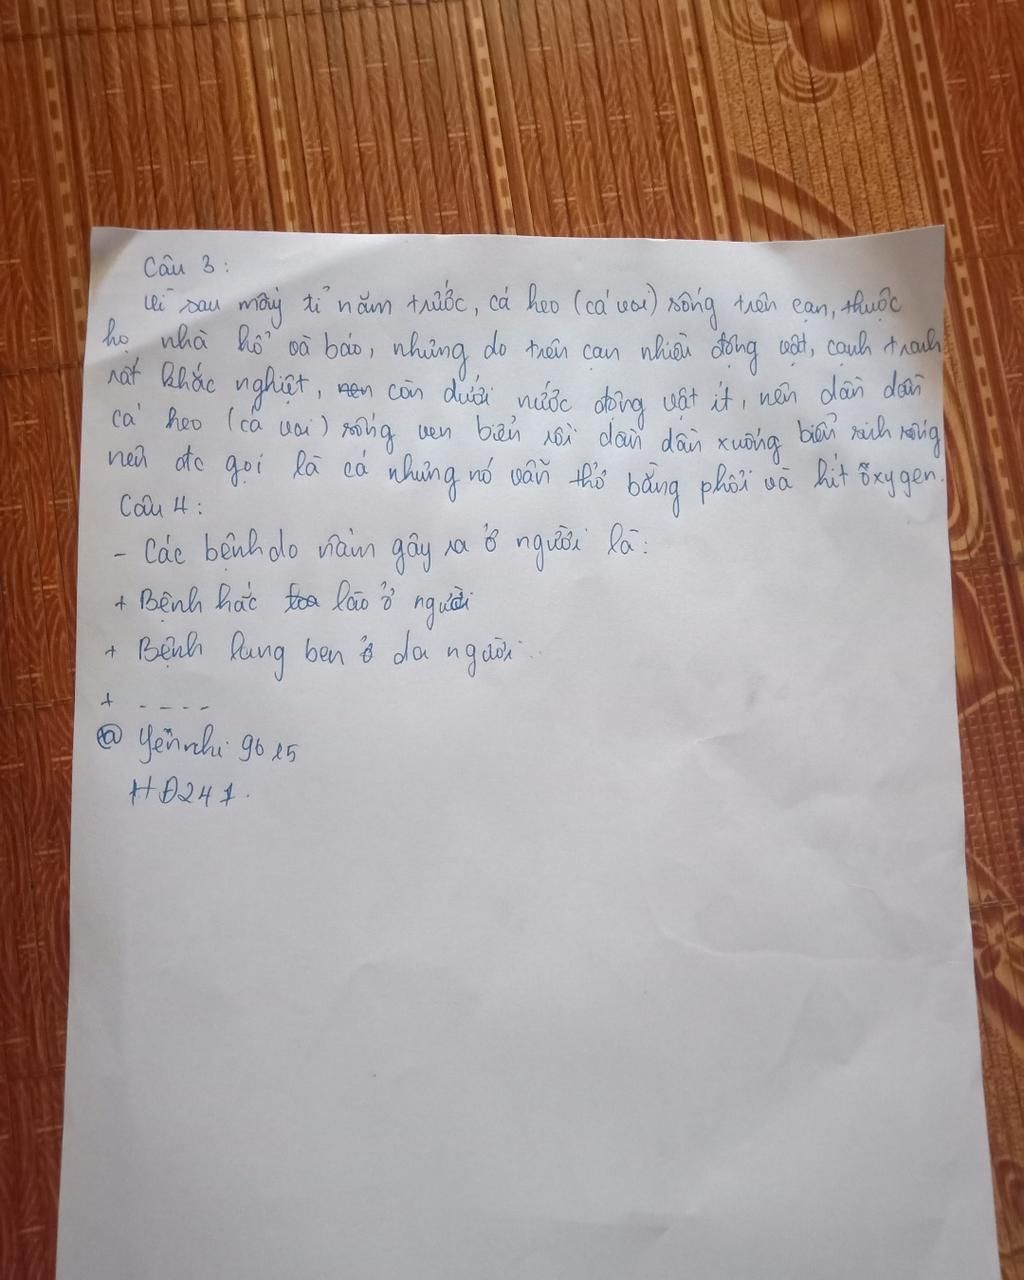 Câu 3:
Vì sau mấy tỉ năm trước, cá heo (cá voi) sống trên cạn, thuộc
họ nhà hổ và báo, nhưng do trên cạn nhiều động vật, cạnh tranh
rất khắc nghiệt, còn dưới nước động vật ít, nên dần dần
cá heo (cá voi) sống ven biển rồi dần dần xuống biển sinh sống
nên đc gọi là cá nhưng nó vẫn thở bằng phổi và hít ôxygen.
Câu 4:
- Các bệnh do nấm gây ra ở người là:
+ Bệnh hắc lào ở người
+ Bệnh lang ben ở da người
+ ----
@ Yến nhi 9615
HĐ241.